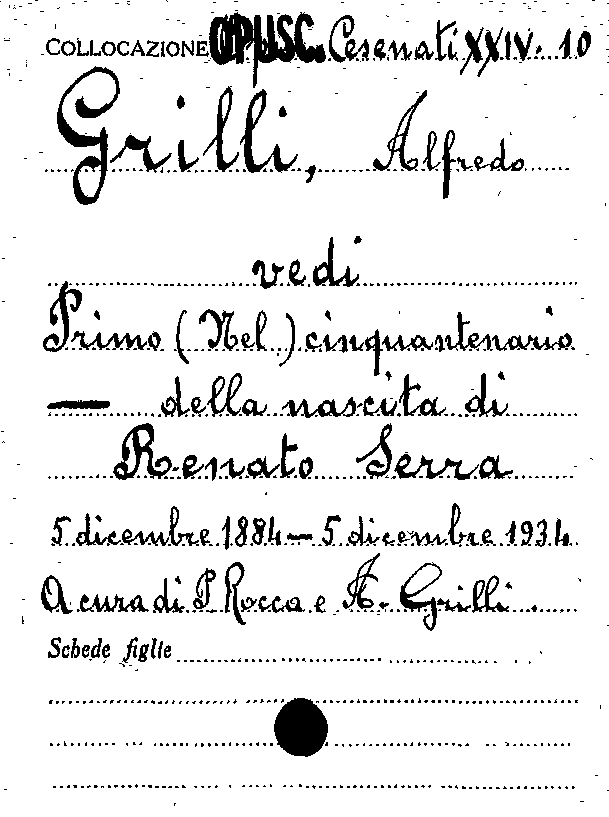 COLLOCAZIONE OPUSC. Cesenati XXIV. 10
Grilli, Alfredo
vedi
Primo (Nel) cinquantenario
— della nascita di
Renato Serra
5 dicembre 1884 — 5 dicembre 1934
A cura di P. Rocca e A. Grilli.
Schede figlie